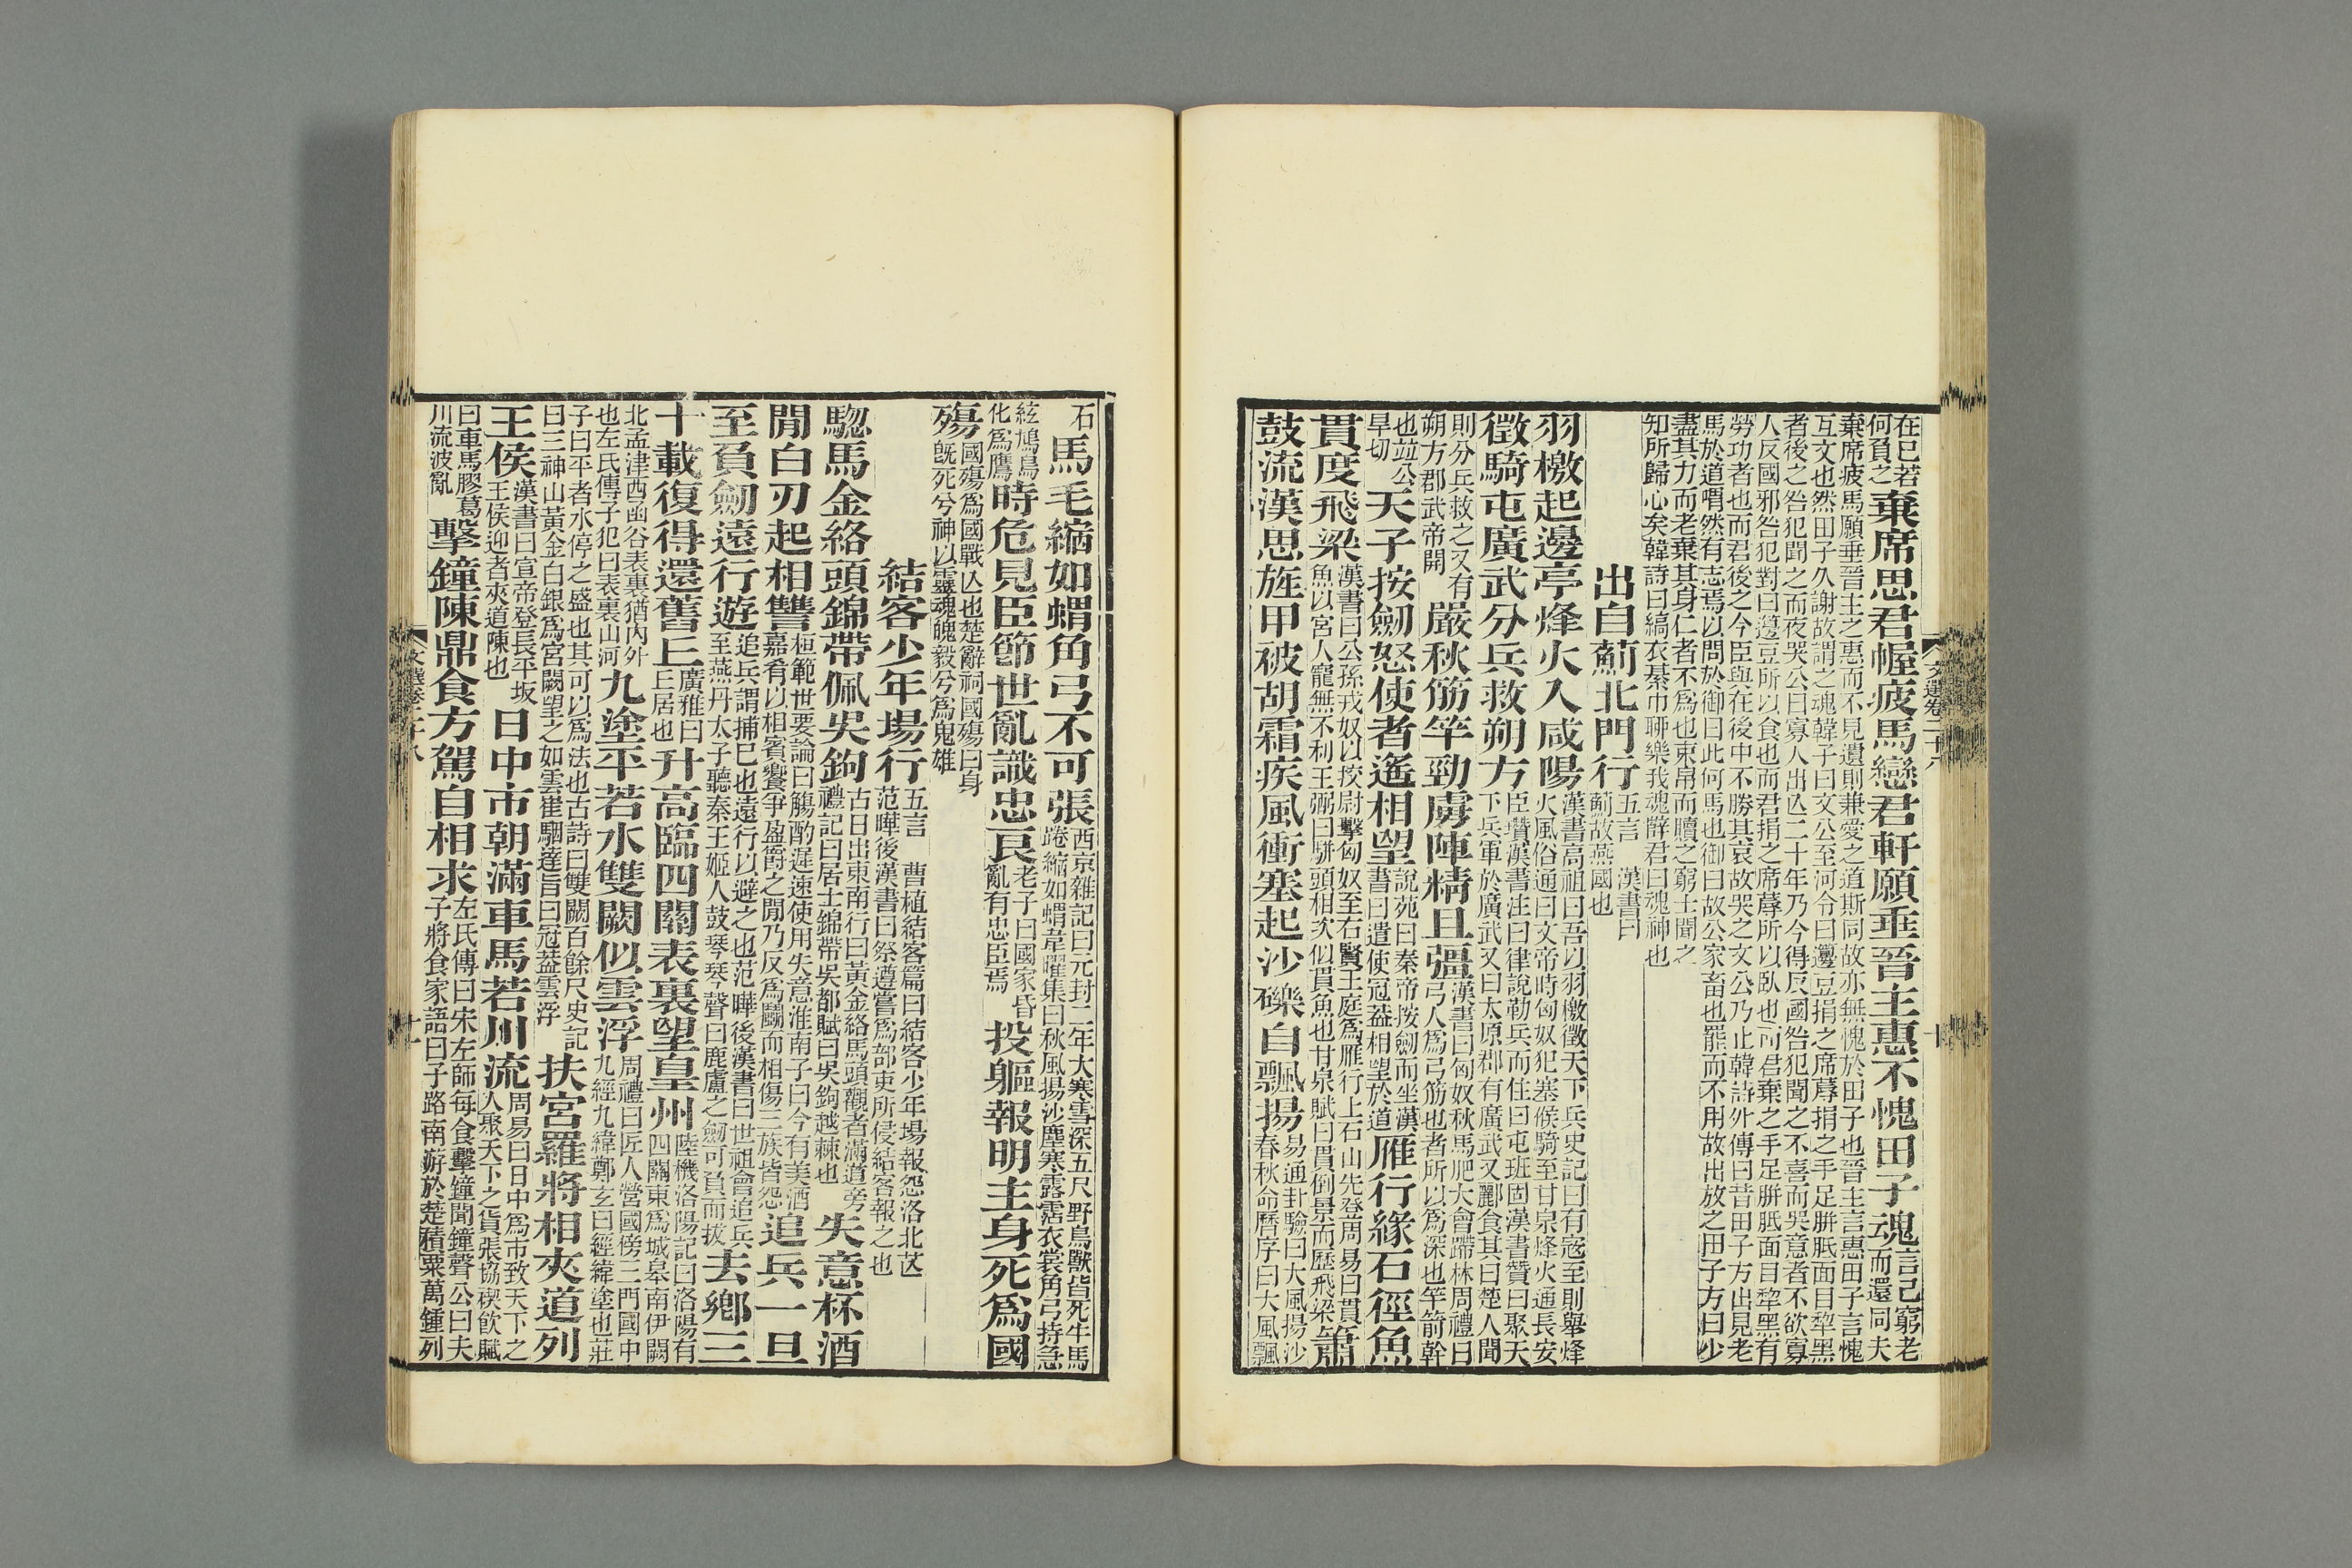 在已若何負之棄席思君幄疲馬戀君軒願垂晉主惠不愧田子魂言己窮老而還同夫
棄席疲馬願垂晉主之惠而不見遺則兼愛之道斯同故亦無愧於田子也晉主言惠田子言愧
互文也然田子久謝故謂之魂韓子曰文公至河令曰籩豆捐之席蓐捐之手足胼胝面目犂黑
者後之咎犯聞之而夜哭公曰寡人出亾二十年乃今得反國咎犯聞之不喜而哭意者不欲寡
人反國邪咎犯對曰籩豆所以食也而君捐之席蓐所以臥也而君棄之手足胼胝面目犂黑有
勞功者也而君後之今臣與在後中不勝其哀故哭之文公乃止韓詩外傳曰昔田子方出見老
馬於道喟然有志焉以問於御曰此何馬也御曰故公家畜也罷而不用故出放之田子方曰少
盡其力而老棄其身仁者不爲也束帛而贖之窮士聞之
知所歸心矣韓詩曰縞衣綦巾聊樂我魂薛君曰魂神也
出自薊北門行五言 漢書曰薊故燕國也
羽檄起邊亭烽火入咸陽漢書高祖曰吾以羽檄徵天下兵史記曰有寇至則舉烽火風俗通曰文帝時匈奴犯塞候騎至甘泉烽火通長安
徵騎屯廣武分兵救朔方臣瓚漢書注曰律說勒兵而住曰屯班固漢書贊曰聚天下兵軍於廣武又曰太原郡有廣武又酈食其曰楚人聞
則分兵救之又有朔方郡武帝開嚴秋筋竿勁虜陣精且彊漢書曰匈奴秋馬肥大會蹛林周禮曰弓人爲弓筋也者所以爲深也竿箭幹
也竝公旱切天子按劒怒使者遙相望說苑曰秦帝按劒而坐漢書曰遣使冠葢相望於道雁行緣石徑魚
貫度飛梁漢書曰公孫戎奴以挍尉擊匈奴至右賢王庭爲雁行上石山先登周易曰貫魚以宮人寵無不利王弼曰駢頭相次似貫魚也甘泉賦曰貫倒景而歷飛梁簫
鼓流漢思旌甲被胡霜疾風衝塞起沙礫自飄揚易通卦驗曰大風揚沙春秋命曆序曰大風飄
石馬毛縮如蝟角弓不可張西京雜記曰元封二年大寒雪深五尺野鳥獸皆死牛馬踡縮如蝟韋曜集曰秋風揚沙塵寒露霑衣裳角弓持急
絃鳩鳥化爲鷹時危見臣節世亂識忠良老子曰國家昏亂有忠臣焉投軀報明主身死爲國
殤國殤爲國戰亾也楚辭祠國殤曰身旣死兮神以靈魂魄毅兮爲鬼雄
結客少年場行五言 曹植結客篇曰結客少年場報怨洛北芒范曄後漢書曰祭遵嘗爲部吏所侵結客報之也
驄馬金絡頭錦帶佩吳鉤古日出東南行曰黃金絡馬頭觀者滿道旁禮記曰居士錦帶吳都賦曰吳鉤越棘也失意杯酒
閒白刃起相讐桓範世要論曰觴酌遲速使用失意淮南子曰今有美酒嘉肴以相賓饗爭盈爵之閒乃反爲鬭而相傷三族皆怨追兵一旦
至負劒遠行遊追兵謂捕已也遠行以避之也范曄後漢書曰世祖會追兵至燕丹太子聽秦王姬人鼓琴琴聲曰鹿盧之劒可負而拔去鄉三
十載復得還舊丘廣雅曰丘居也升高臨四關表裏望皇州陸機洛陽記曰洛陽有四關東爲城皋南伊闕
北孟津西函谷表裏猶內外也左氏傳子犯曰表裏山河九塗平若水雙闕似雲浮周禮曰匠人營國傍三門國中九經九緯鄭玄曰經緯塗也莊
子曰平者水停之盛也其可以爲法也古詩曰雙闕百餘尺史記曰三神山黃金白銀爲宮闕望之如雲崔駰達旨曰冠葢雲浮扶宮羅將相夾道列
王侯漢書曰宣帝登長平坂王侯迎者夾道陳也日中市朝滿車馬若川流周易曰日中爲市致天下之人聚天下之貨張協禊飲賦
曰車馬膠葛川流波亂擊鐘陳鼎食方駕自相求左氏傳曰宋左師每食擊鐘聞鐘聲公曰夫子將食家語曰子路南游於楚積粟萬鍾列